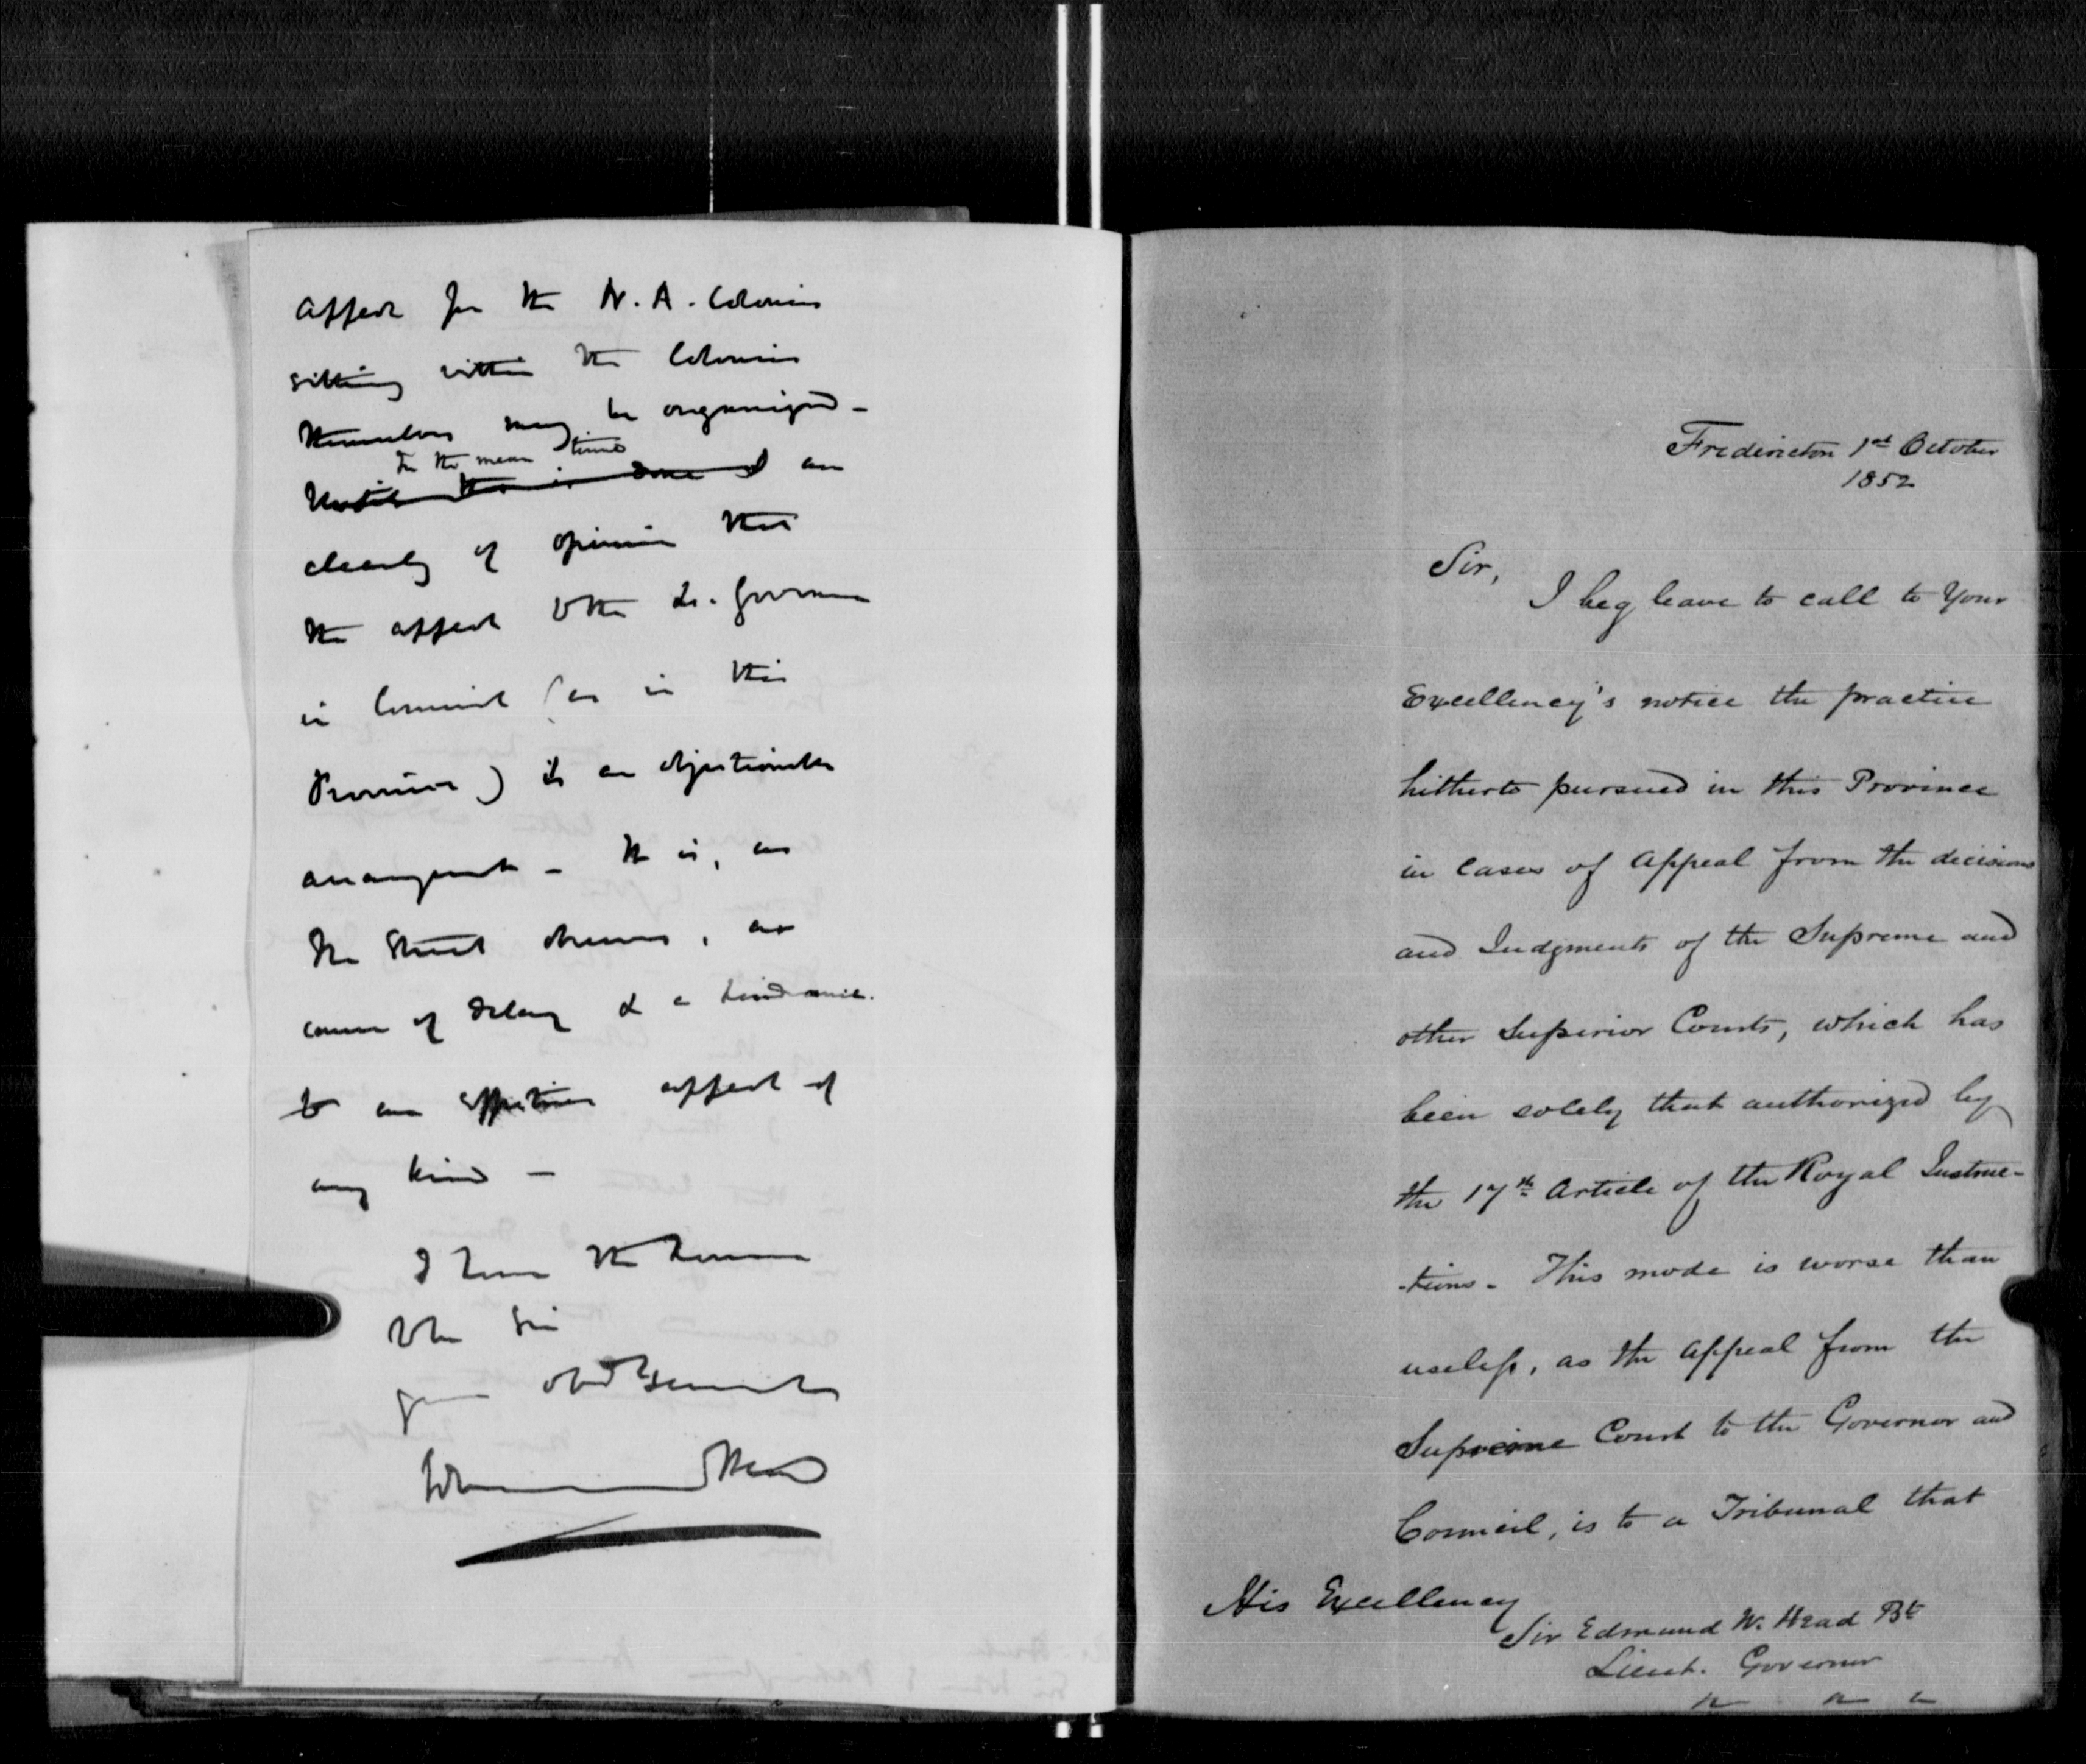 Appeal for the N. A. Colonies
sitting within the Colonies
themselves may be organized -
In the mean time
Until this is done I am
clearly of opinion that
the appeal to the Lt. Governor
in Council (as in this
Province) is an objectionable
arrangement - It is, as
Mr Street observes, a
cause of delay & a hindrance
to an effective appeal of
any kind -
I have the honor
to be Sir
your obdt Servant
Edmund Head
Fredericton 1st October
1852
Sir,
I beg leave to call to Your
Excellency's notice the practice
hitherto pursued in this Province
in cases of Appeal from the decisions
and Judgments of the Supreme and
other Superior Courts, which has
been solely that authorized by
the 17th Article of the Royal Instruc-
-tions. This mode is worse than
useless, as the Appeal from the
Supreme Court to the Governor and
Council, is to a Tribunal that
His Excellency
Sir Edmund W. Head Bt
Lieut. Governor